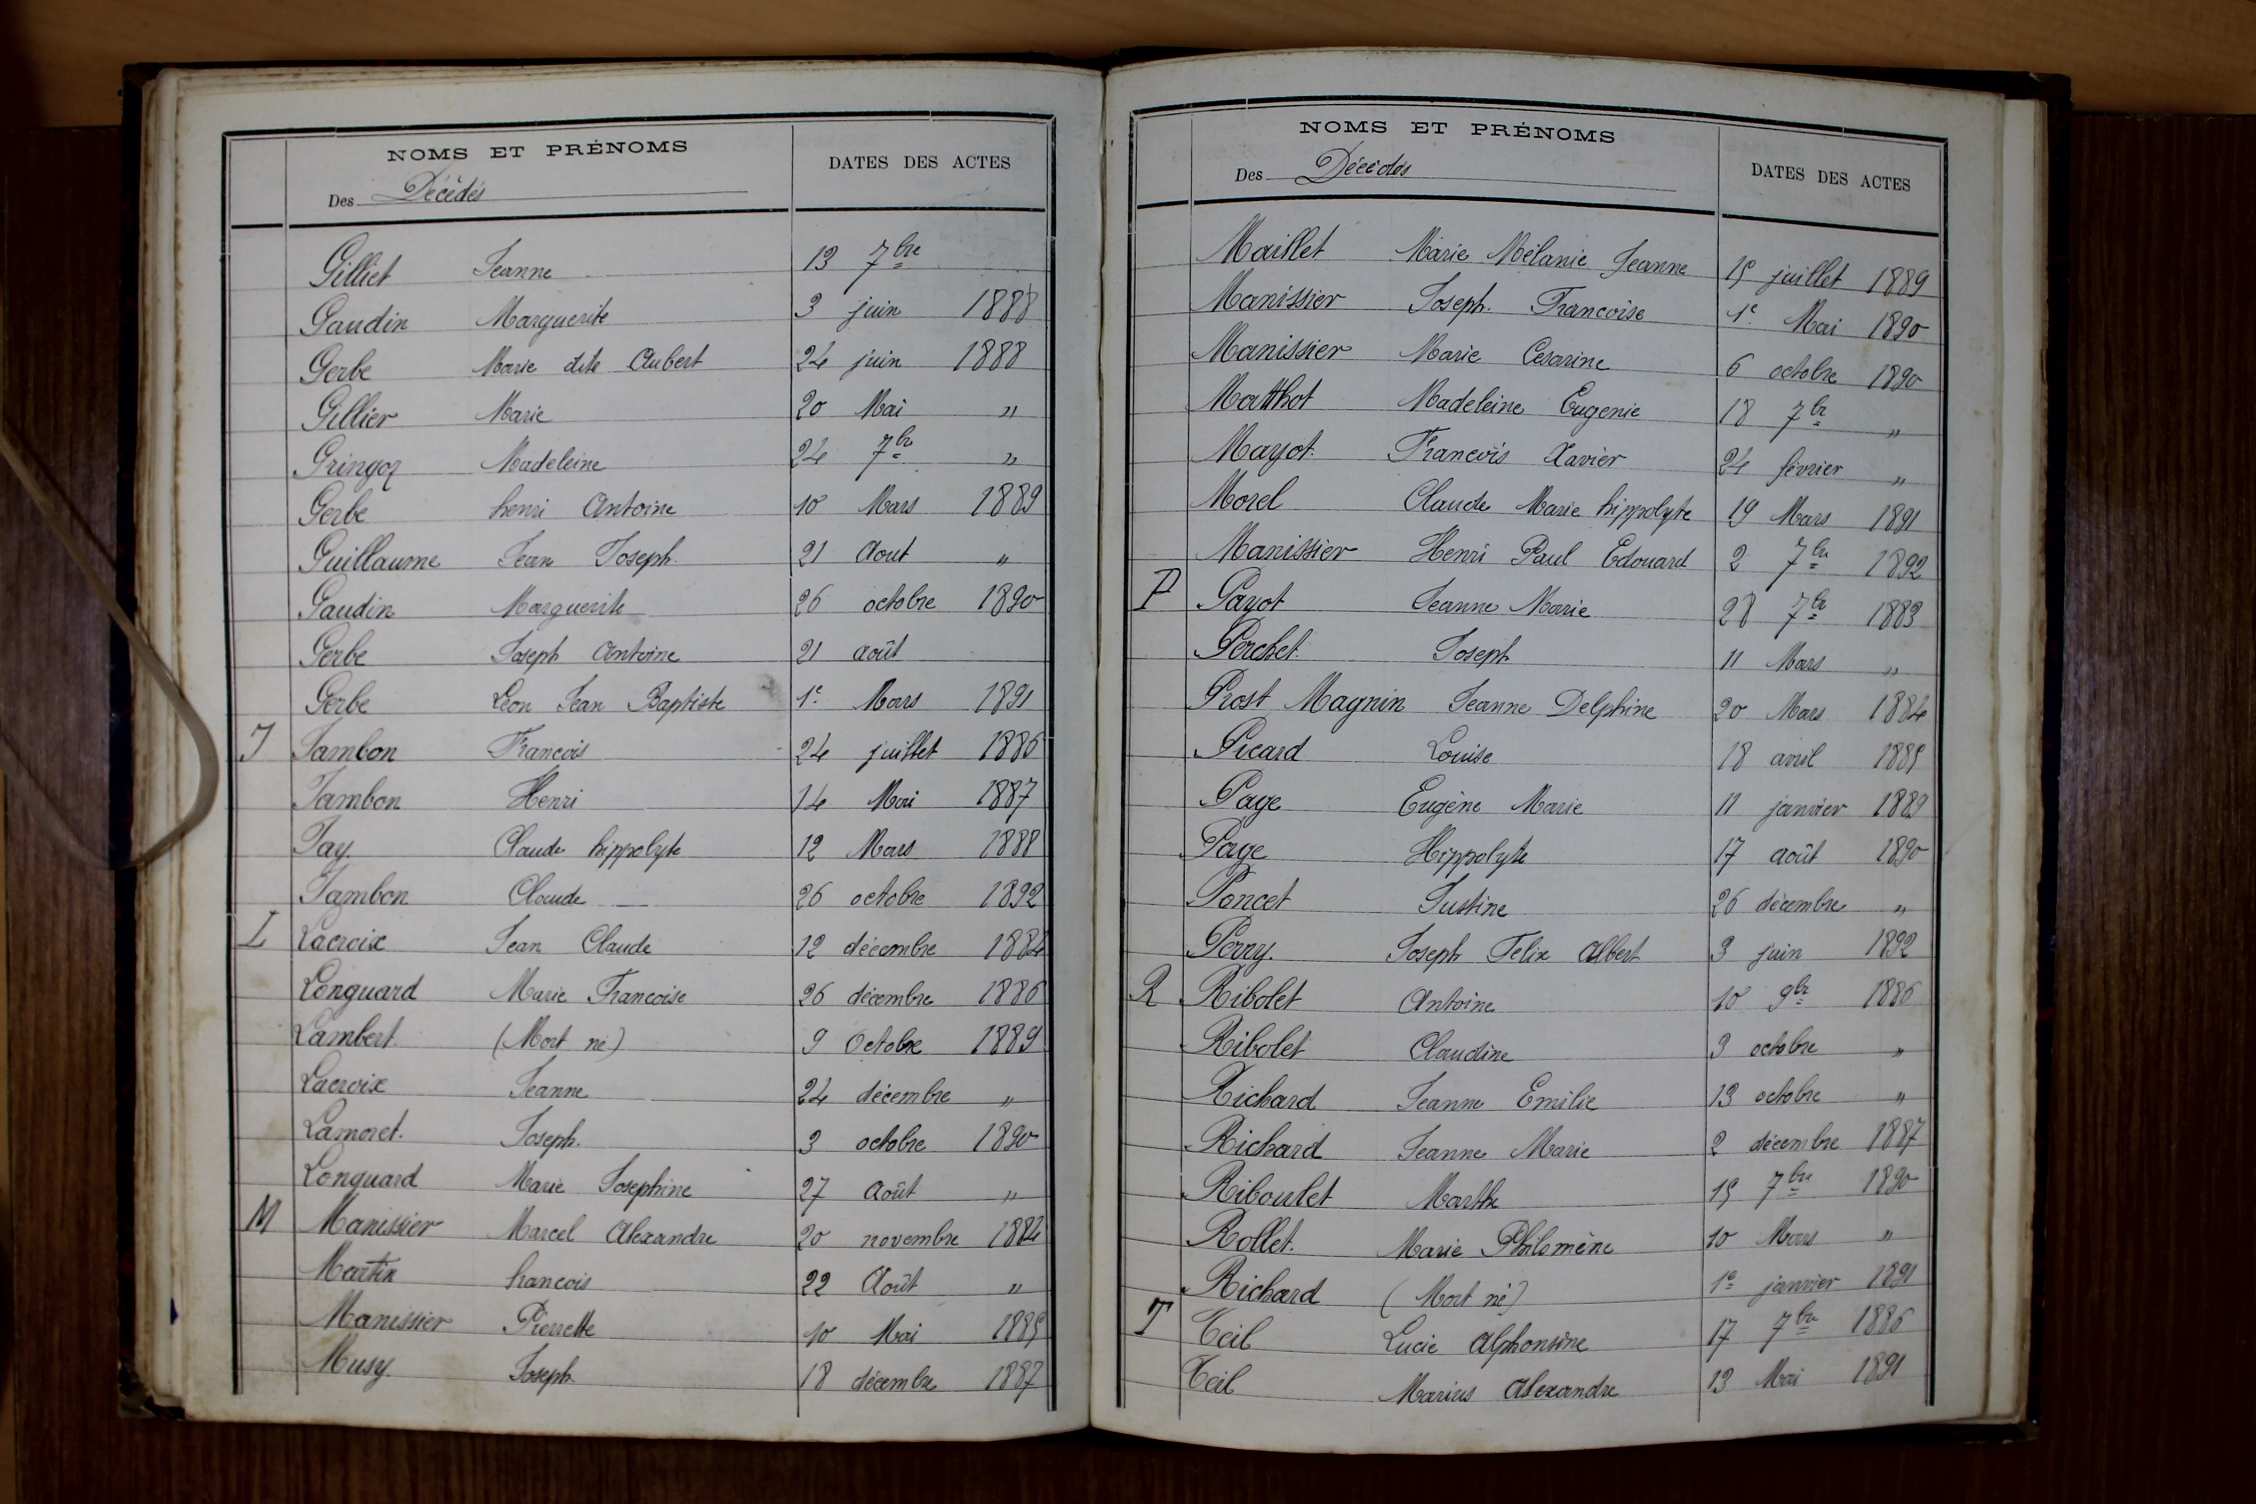 NOMS ET PRÉNOMS
DATES DES ACTES
Des Décédés
Gilliet Jeanne 13 7bre
Gaudin Marguerite 3 juin 1888
Gerbe Marie dite Aubert 24 juin 1888
Gillier Marie 20 Mai "
Gringoz Madeleine 24 7bre "
Gerbe henri Antoine 10 Mars 1889
Guillaume Jean Joseph. 21 Aout "
Gaudin Marguerite 26 octobre 1890
Gerbe Joseph Antoine 21 août
Gerbe Léon Jean Baptiste 1e. Mars 1891
J Jambon Francois 24 juillet 1886
Jambon Henri 14 Mai 1887
Jay. Claude hippolyte 12 Mars 1888
Jambon Claude 26 octobre 1892
L Lacroix Jean Claude 12 décembre 1884
Longuard Marie Francoise 26 décembre 1886
Lambert (Mort né) 9 Octobre 1889
Lacroix Jeanne 24 décembre "
Lamoret. Joseph. 3 octobre 1890
Longuard Marie Josephine 27 Août "
M Manissier Marcel Alexandre 20 novembre 1884
Martin francois 22 Août "
Manissier Pierrette 10 Mai 1885
Musy. Joseph 18 décembre 1887
NOMS ET PRÉNOMS
DATES DES ACTES
Des Décédés
Maillet Marie Mélanie Jeanne 15 juillet 1889
Manissier Joseph. Francoise 1e. Mai 1890
Manissier Marie Cesarine 6 octobre 1890
Matthot Madeleine Eugenie 18 7br "
Mayot. Francois Xavier 24 février "
Morel Claude Marie hippolyte 19 Mars 1891
Manissier Henri Paul Edouard 2 7bre 1892
P Payot Jeanne Marie 28 7br 1883
Perchet. Joseph 11 Mars "
Prost Magnin Jeanne Delphine 20 Mars 1884
Picard Louise 18 avril 1885
Page Eugène Marie 11 janvier 1889
Page Hippolyte 17 août 1890
Poncet Justine 26 décembre "
Perry. Joseph Felix Albert 3 juin 1892
R Ribolet Antoine 10 9br 1886
Ribolet Claudine 3 octobre "
Richard Jeanne Emilie 13 octobre "
Richard Jeanne Marie 2 décembre 1887
Riboulet Marthe 15 7bre 1890
Rollet. Marie Philomène 10 Mars "
Richard (Mort né) 1e janvier 1891
T Teil Lucie Alphonsine 17 7bre 1886
Teil Marius Alexandre 13 Mai 1891